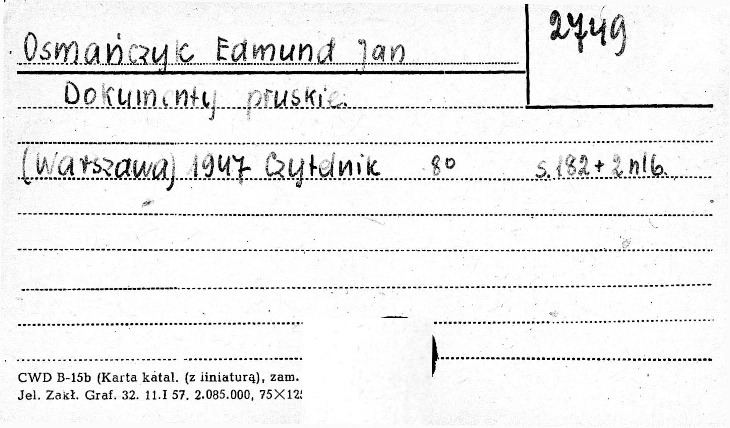 2749
Osmańczyk Edmund Jan
Dokumenty pruskie.
(Warszawa) 1947 Czytelnik 8° s. 182 + 2 nlb.
CWD B-15b (Karta katal. (z liniaturą), zam.
Jel. Zakł. Graf. 32. 11.I 57. 2.085.000, 75×125